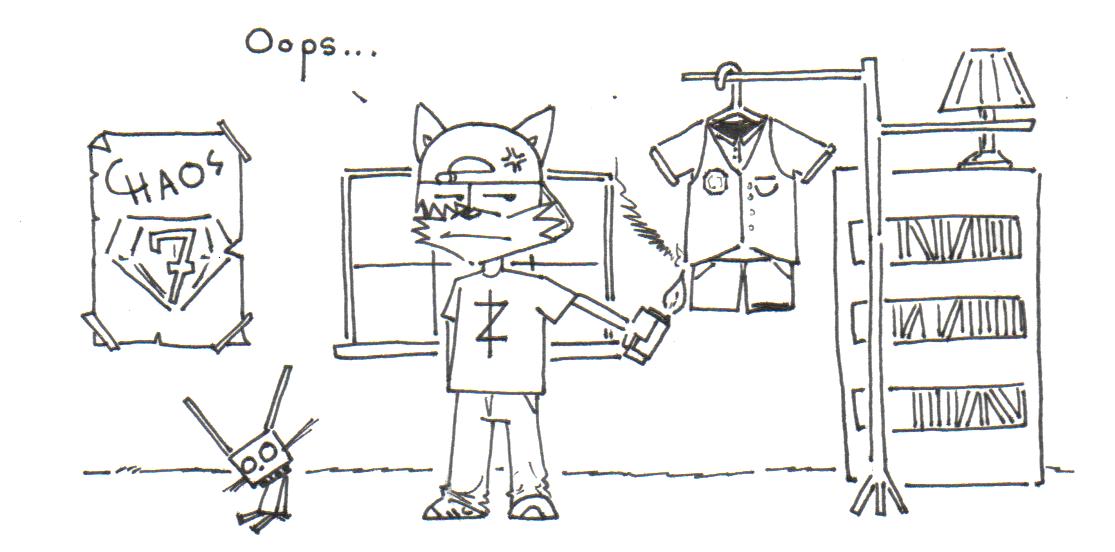 Oops...
CHAOS
7
Z